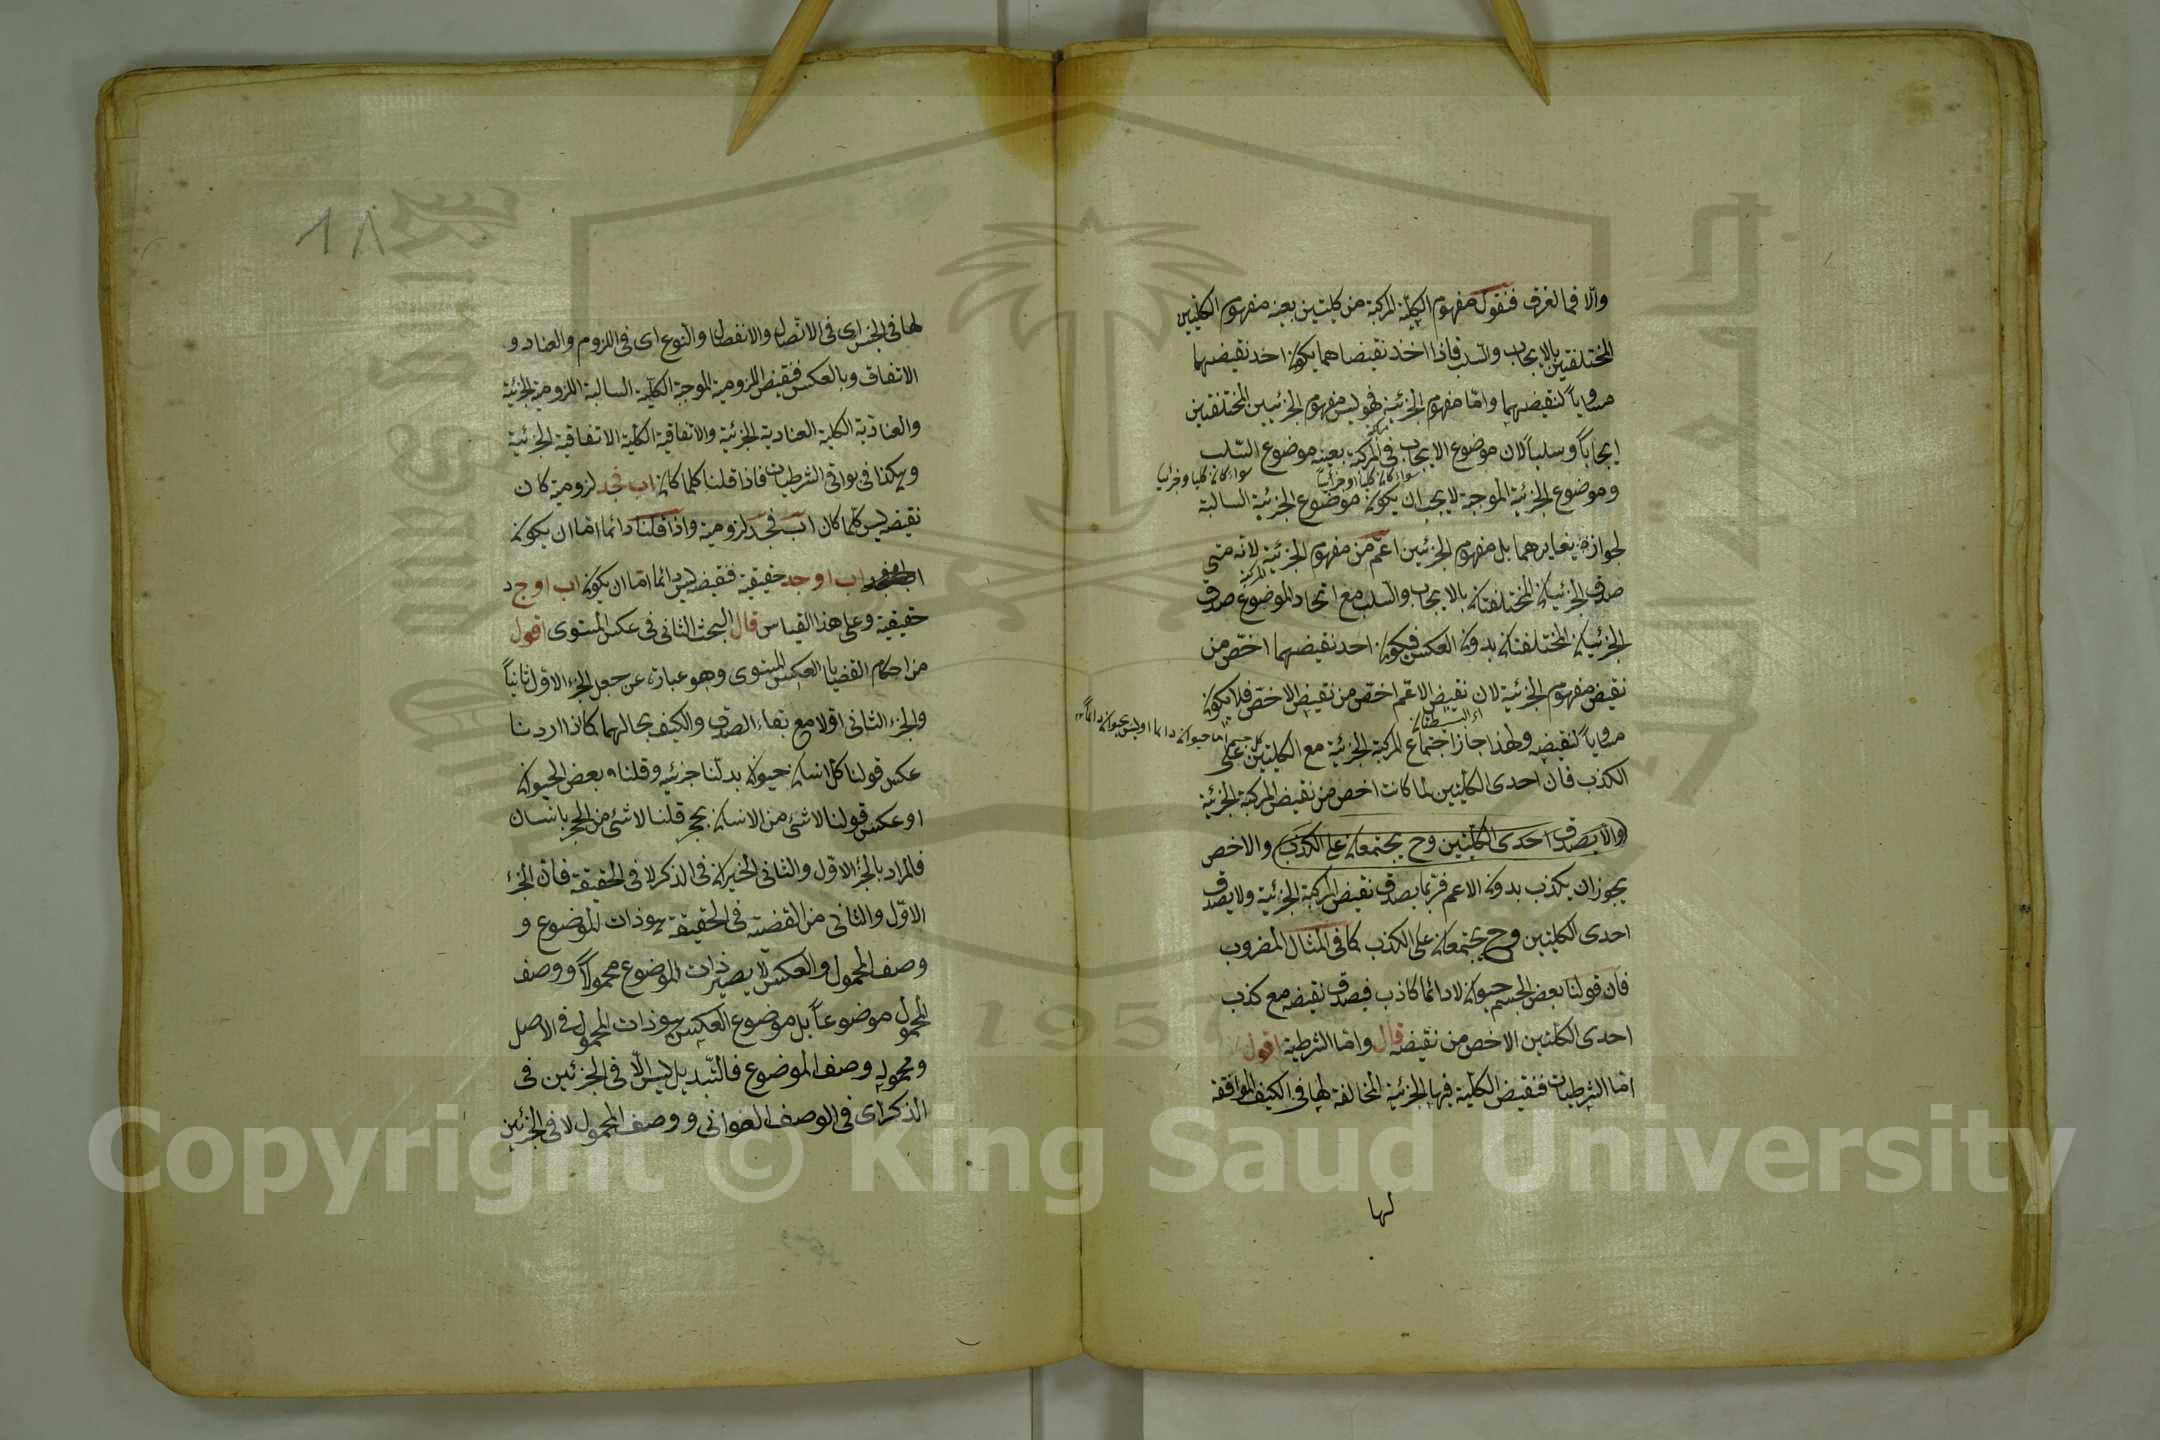 والا فما الفرق فنقول مفهوم الكلية المركبة من كليتين بعينه مفهوم الكليتين
المختلفتين بالايجاب والسلب فاذا اخذ نقيضاهما يكون احد نقيضيهما
مساويا لنقيضهما واما مفهوم الجزئية فهو ليس مفهوم الجزئيين المختلفتين
ايجابا وسلبا لان موضوع الايجاب في المركبة بعينه موضوع السلب
سواء كانت كليا او جزئيا سواء كانت كليا وجزئيا
وموضوع الجزئية الموجبة لا يجب ان يكون موضوع الجزئية السالبة
لجواز تغايرهما بل مفهوم الجزئين اعم من مفهوم الجزئية لانه متى
المركبة
صدق الجزئيتان المختلفتان بالايجاب والسلب مع اتحاد الموضوع صدق
الجزئيتان المختلفتان بدون العكس فيكون احد نقيضيهما اخص من
نقيض مفهوم الجزئية لان نقيض الاعم اخص من نقيض الاخص فلا يكون
كل جسم اما حيوان دائما او ليس بحيوان دائما
مساويا لنقيضه ولهذا جاز اجتماع المركبة الجزئية مع الكليتين على
الكذب فان احدى الكليتين لما كانت اخص من نقيض المركبة الجزئية
والا يصدق احدى الكليتين وح يجتمعان على الكذب والاخص
يجوز ان يكذب بدون الاعم فربما يصدق نقيض المركبة الجزئية ولا يصدق
احدى الكليتين وح يجتمعان على الكذب كما في المثال المضروب
فان قولنا بعض الجسم حيوان لا دائما كاذب فيصدق نقيضه مع كذب
احدى الكليتين الاخص من نقيضه قال واما الشرطية اقول
اما الشرطيات فنقيض الكلية فيها الجزئية المخالفة لها في الكيف الموافقة
لها
١٨
لها في الجنس اى في الاتصال والانفصال والنوع اى في اللزوم والعناد و
الاتفاق وبالعكس فنقيض اللزومية الموجبة الكلية السالبة اللزومية الجزئية
والعنادية الكلية العنادية الجزئية والاتفاقية الكلية الاتفاقية الجزئية
وهكذا في بواقي الشرطيات فاذا قلنا كلما كان اب فجد لزومية كان
نقيضه ليس كلما كان اب فجد لزومية واذا قلنا دائما اما ان يكون
اب او جد حقيقية فنقيضه ليس دائما اما ان يكون اب او ج د
حقيقية وعلى هذا القياس قال البحث الثاني في عكس المستوى اقول
من احكام القضايا العكس المستوى وهو عبارة عن جعل الجزء الاول ثانيا
والجزء الثاني اولا مع بقاء الصدق والكيف بحالهما كما اذا اردنا
عكس قولنا كل انسان حيوان بدلنا جزئيه وقلنا بعض الحيوان
او عكس قولنا لا شئ من الانسان بحجر قلنا لا شئ من الحجر بانسان
فالمراد بالجزء الاول والثاني الجزءان في الذكر لا في الحقيقة فان الجزء
الاول والثاني من القضية في الحقيقة هو ذات الموضوع و
وصف المحمول والعكس لا يصير ذات الموضوع محمولا ووصف
المحمول موضوعا بل موضوع العكس هو ذات المحمول في الاصل
ومحموله وصف الموضوع فالتبديل ليس الا في الجزئين في
الذكر اى في الوصف العنواني ووصف المحمول لا في الجزئين
Copyright © King Saud University
1957